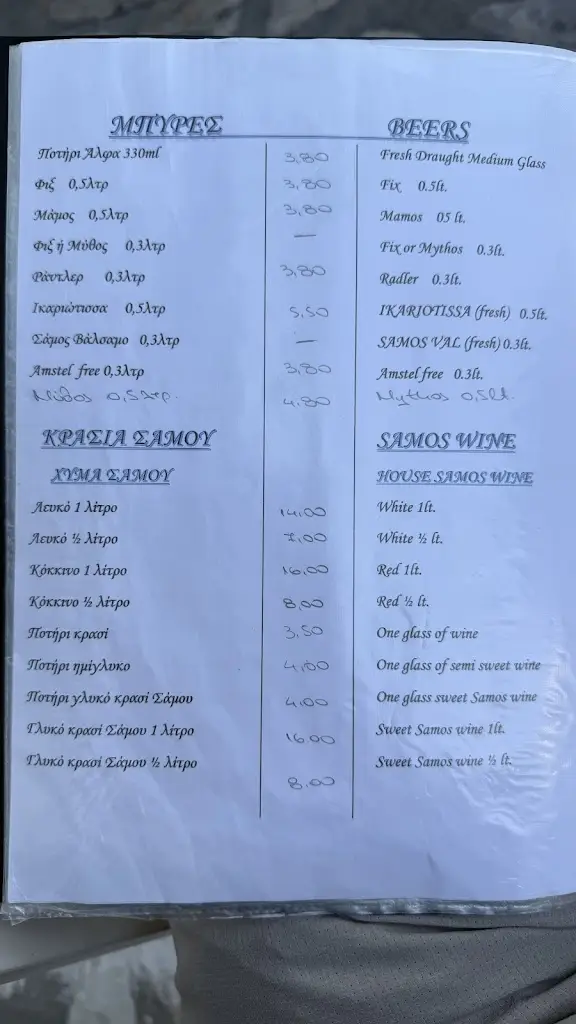 ΜΠΥΡΕΣ BEERS
Ποτήρι Άλφα 330ml 3,80 Fresh Draught Medium Glass
Φιξ 0,5λτρ 3,80 Fix 0.5lt.
Μάμος 0,5λτρ 3,80 Mamos 05 lt.
Φιξ ή Μύθος 0,3λτρ — Fix or Mythos 0.3lt.
Ράντλερ 0,3λτρ 3,80 Radler 0.3lt.
Ικαριώτισσα 0,5λτρ 5,50 IKARIOTISSA (fresh) 0.5lt.
Σάμος Βάλσαμο 0,3λτρ — SAMOS VAL (fresh) 0.3lt.
Amstel free 0,3λτρ 3,80 Amstel free 0.3lt.
Μύθος 0,5λτρ. 4.80 Mythos 0,5lt.
ΚΡΑΣΙΑ ΣΑΜΟΥ SAMOS WINE
ΧΥΜΑ ΣΑΜΟΥ HOUSE SAMOS WINE
Λευκό 1 λίτρο 14,00 White 1lt.
Λευκό ½ λίτρο 7,00 White ½ lt.
Κόκκινο 1 λίτρο 16,00 Red 1lt.
Κόκκινο ½ λίτρο 8,00 Red ½ lt.
Ποτήρι κρασί 3,50 One glass of wine
Ποτήρι ημίγλυκο 4,00 One glass of semi sweet wine
Ποτήρι γλυκό κρασί Σάμου 4,00 One glass sweet Samos wine
Γλυκό κρασί Σάμου 1 λίτρο 16,00 Sweet Samos wine 1lt.
Γλυκό κρασί Σάμου ½ λίτρο 8,00 Sweet Samos wine ½ lt.